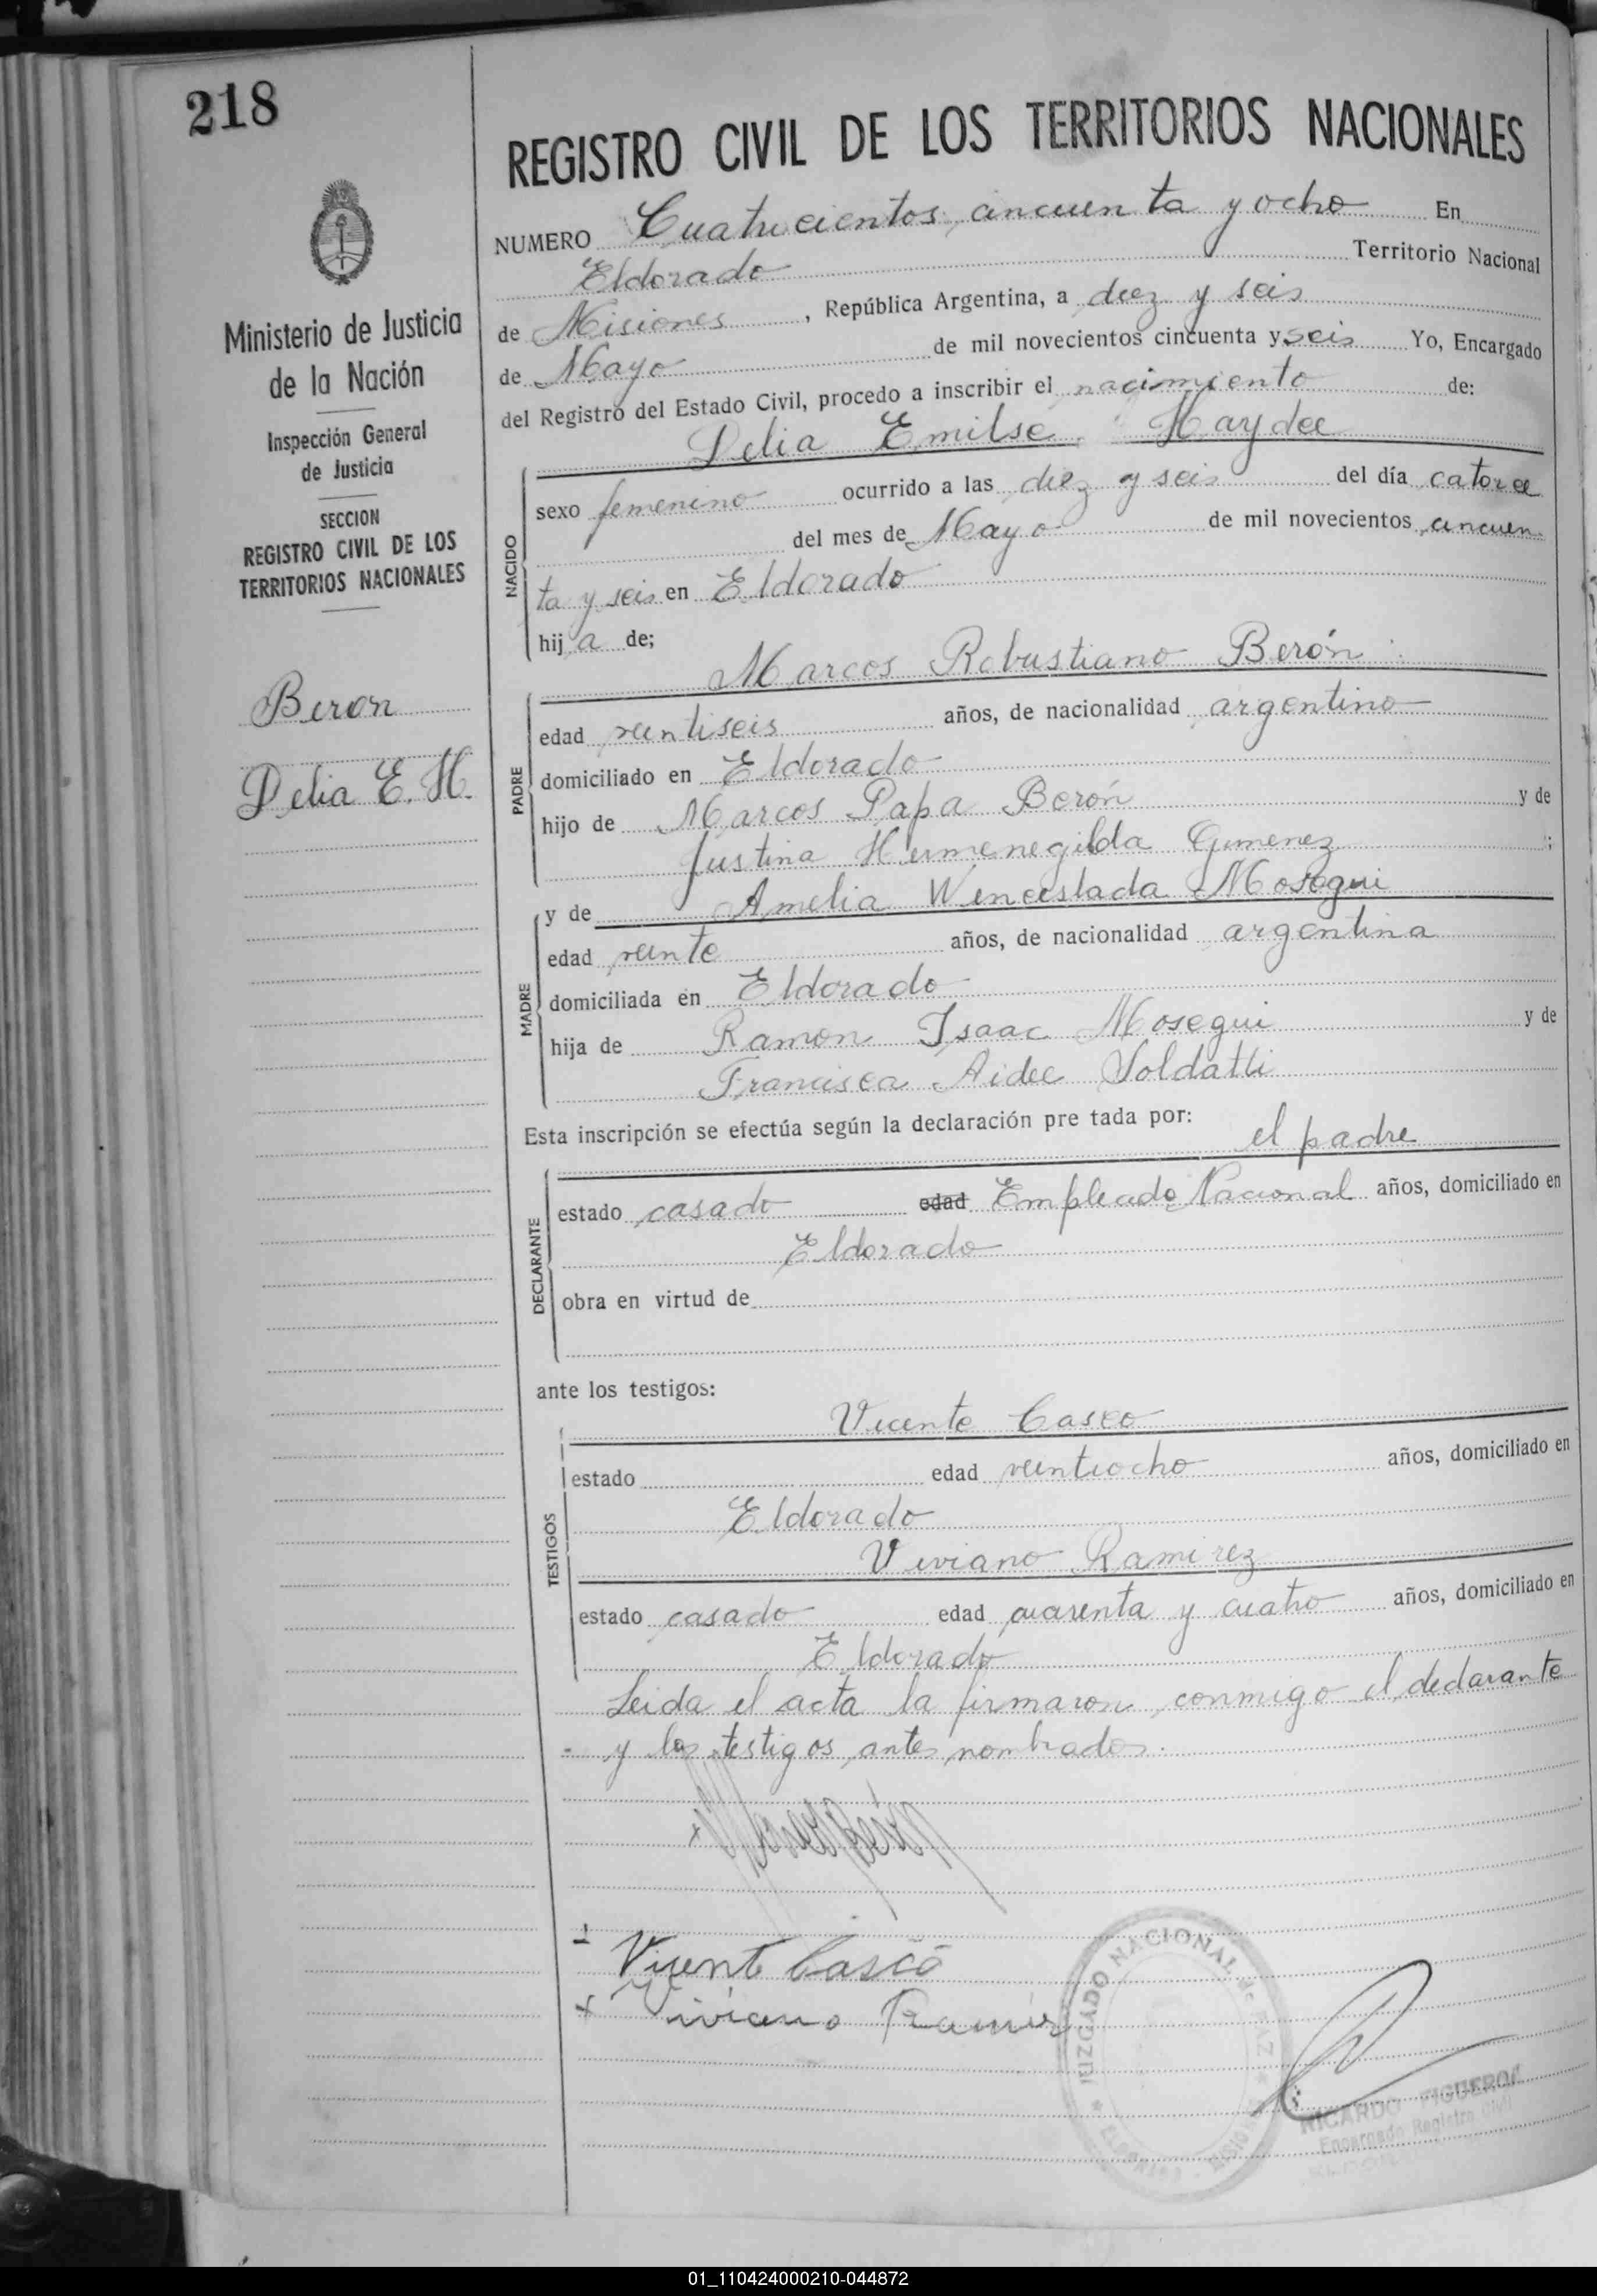 218
REGISTRO CIVIL DE LOS TERRITORIOS NACIONALES
NUMERO Cuatrocientos cincuenta y ocho En
Eldorado Territorio Nacional
de Misiones, República Argentina, a diez y seis
de Mayo de mil novecientos cincuenta y seis Yo, Encargado
del Registro del Estado Civil, procedo a inscribir el nacimiento de:
Delia Emilse Haydee
Ministerio de Justicia
de la Nación
Inspección General
de Justicia
SECCION
REGISTRO CIVIL DE LOS
TERRITORIOS NACIONALES
Beron
Delia E. H.
NACIDO
sexo femenino ocurrido a las diez y seis del día catorce
del mes de Mayo de mil novecientos cincuen
ta y seis en Eldorado
hija de;
Marcos Robustiano Berón
PADRE
edad veintiseis años, de nacionalidad argentino
domiciliado en Eldorado
hijo de Marcos Papa Berón y de
Justina Hermenegilda Gimenez ;
y de Amelia Wenceslada Mosegui
MADRE
edad veinte años, de nacionalidad argentina
domiciliada en Eldorado
hija de Ramon Isaac Mosegui y de
Francisca Aidee Soldatti
Esta inscripción se efectúa según la declaración pre tada por: el padre
DECLARANTE
estado casado edad Empleado Nacional años, domiciliado en
Eldorado
obra en virtud de
ante los testigos:
Vicente Casco
TESTIGOS
estado edad veintiocho años, domiciliado en
Eldorado
Viviano Ramirez
estado casado edad cuarenta y cuatro años, domiciliado en
Eldorado
Leida el acta la firmaron conmigo el declarante
y los testigos antes nombrados.
Vicent Casco
Viviano Ramirez
JUZGADO NACIONAL DE PAZ
RICARDO FIGUEROA
Encargado Registro Civil
01_110424000210-044872